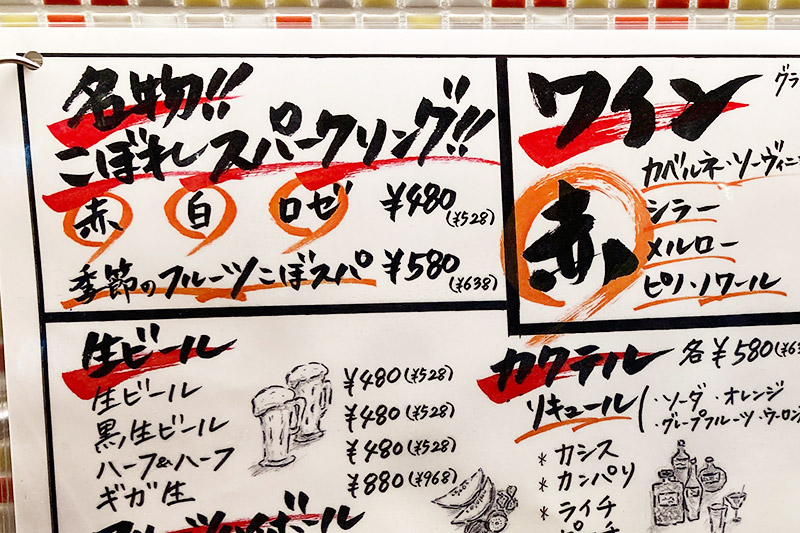 名物!!
こぼれスパークリング!!
赤 白 ロゼ ¥480(¥528)
季節のフルーツこぼスパ ¥580(¥638)
ワイン
赤
カベルネ・ソーヴィニ
シラー
メルロー
ピノ・ノワール
生ビール
生ビール ¥480(¥528)
黒生ビール ¥480(¥528)
ハーフ&ハーフ ¥480(¥528)
ギガ生 ¥880(¥968)
カクテル 各¥580(¥63
リキュール(・ソーダ・オレンジ
・グレープフルーツ・ウーロン
*カシス
*カンパリ
*ライチ